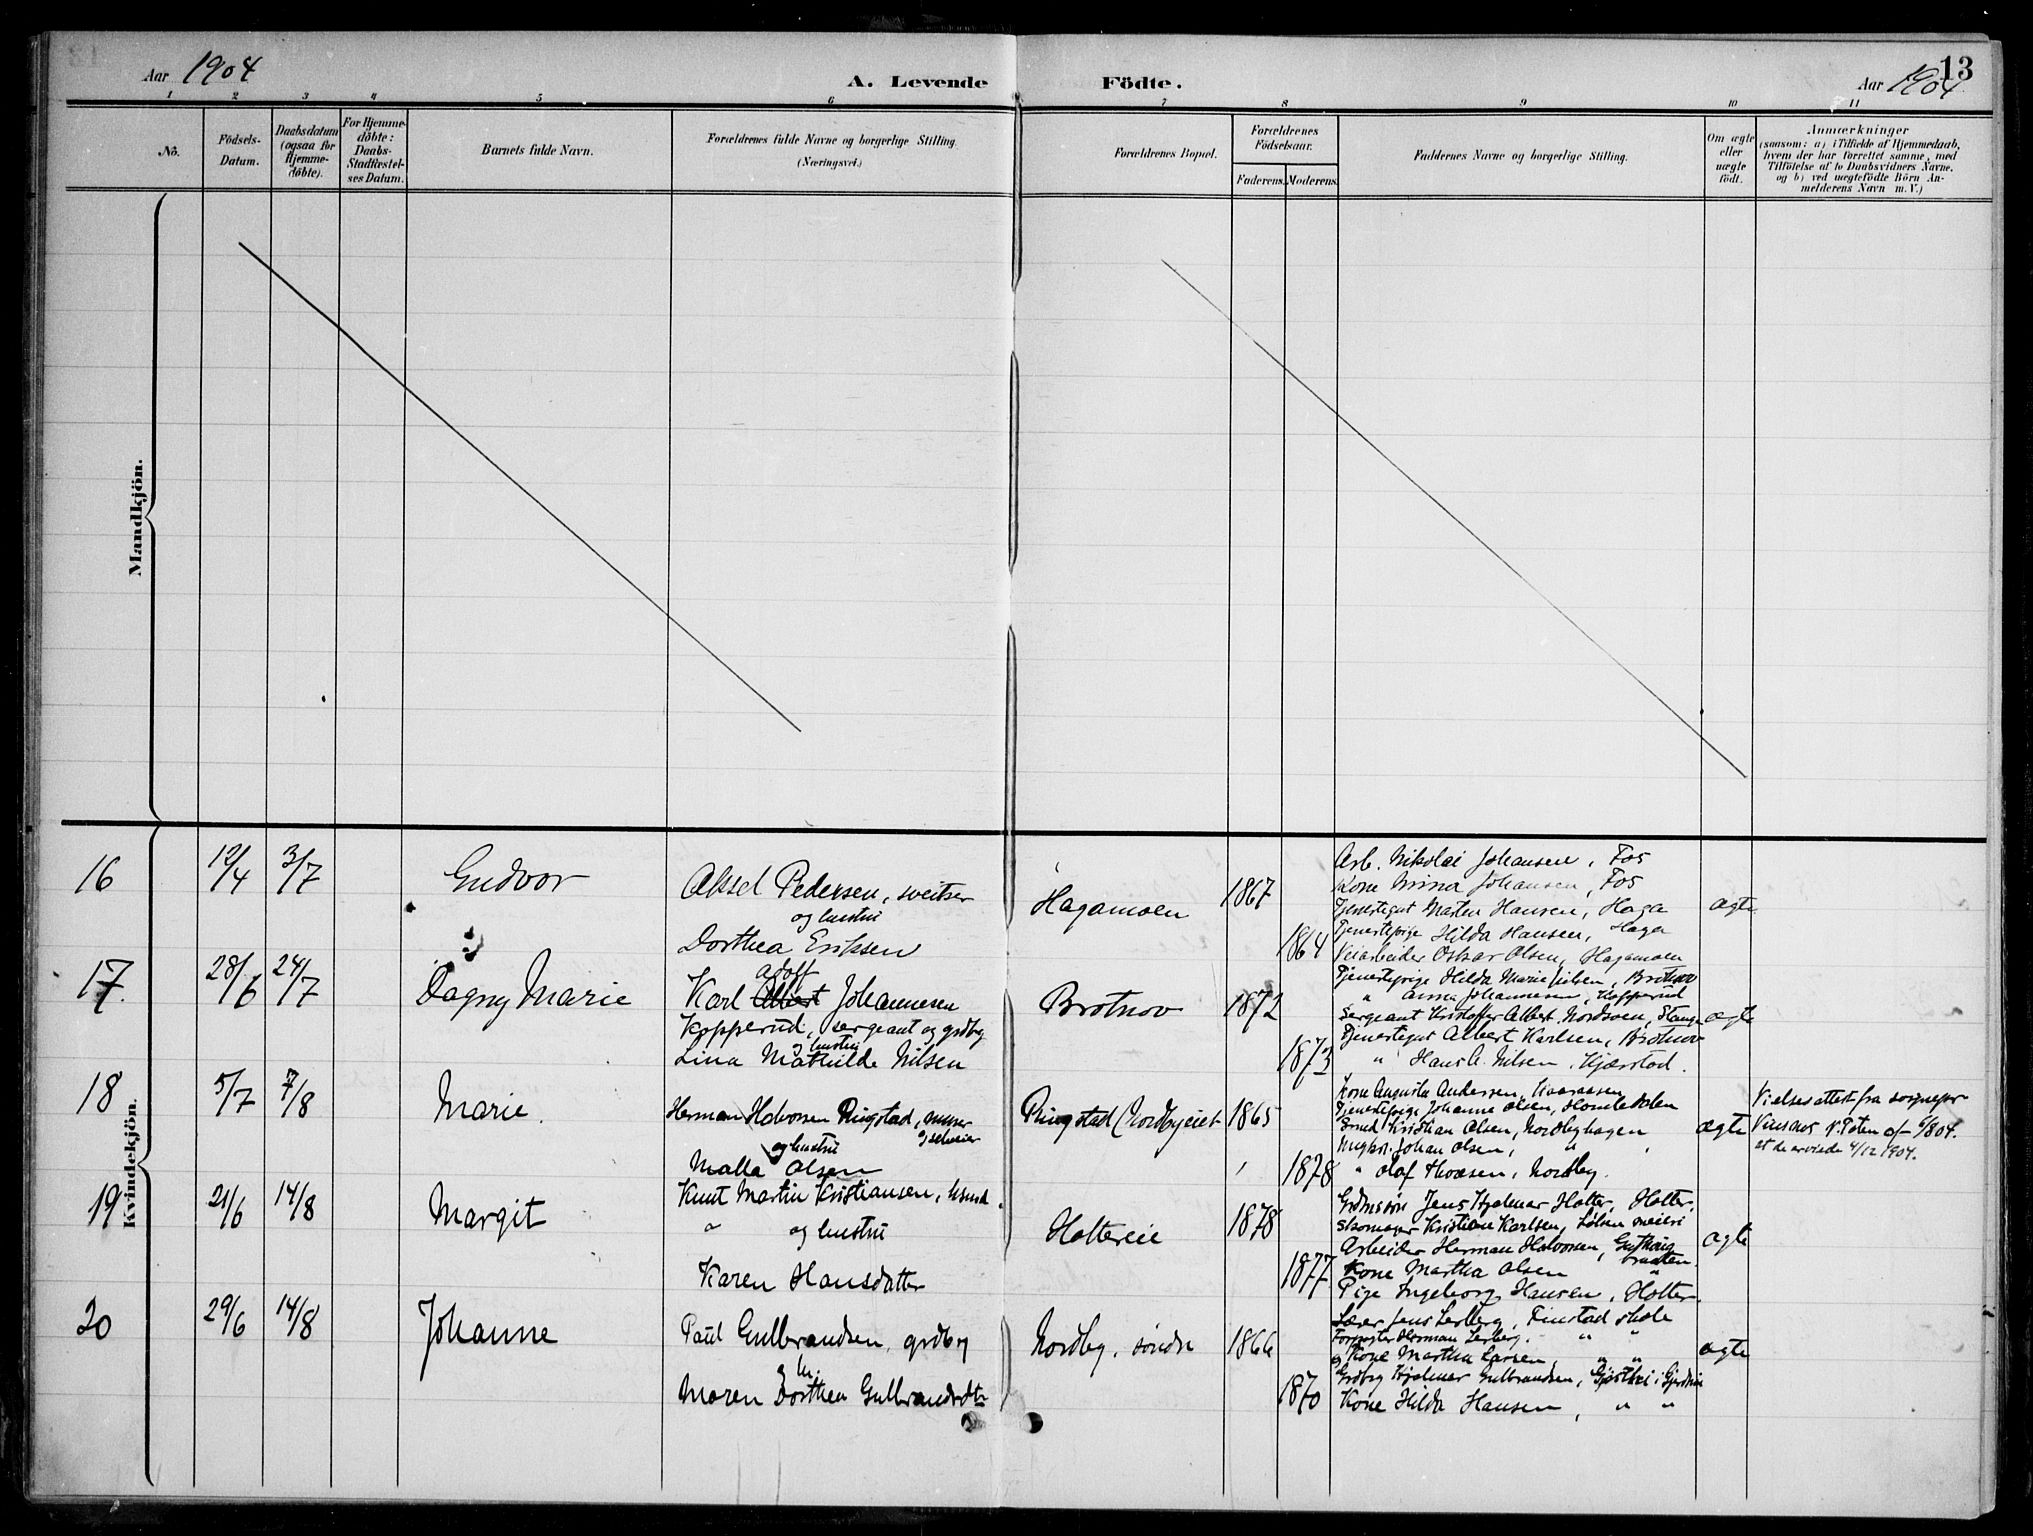 13
Aar 1904
A. Levende Födte.
Aar 1904
1 2 3 4 5 6 7 8 9 10 11
No.
Födsels-
Datum.
Daabsdatum
(ogsaa for
Hjemme-
döbte).
For Hjemme-
döbte:
Daabs-
Stadfæstel-
ses Datum.
Barnets fulde Navn.
Forældrenes fulde Navne og borgerlige Stilling.
(Næringsvei.)
Forældrenes Bopæl.
Forældrenes
Födselsaar.
Faderens. Moderens.
Faddernes Navne og borgerlige Stilling.
Om ægte
eller
uægte
födt.
Anmærkninger
(saasom: a) i Tilfælde af Hjemmedaab,
hvem der har forrettet samme, med
Tilföielse af to Daabsvidners Navne,
og b) ved uægtefödte Börn An-
melderens Navn m. V.)
Mandkjön.
Kvindekjön.
16
12/4
3/7
Gudvor
Aksel Pedersen, sveitser
og hustru
Dorthea Eriksen
Hagamoen
1867
1864
Arb. Nikolai Johansen, Fos
Kone Mina Johansen, Fos
Tjenestegut Marten Hansen, Haga
Tjenestepige Hilda Hansen, Haga
Veiarbeider Oskar Olsen, Hagamoen
ægte
17.
28/6
24/7
Dagny Marie
Adolf
Karl Albert Johannesen
Kopperud, sergeant og grdbg
og hustru
Lina Mathilde Nilsen
Brotnov
1872
1873
Tjenestepige Hilda Marie Nilsen, Brotnov
" Anna Johannesen, Kopperud
Sergeant Kristoffer Albert Nordsven, Stange
Tjenestegut Albert Karlsen, Brotnov
" Hans A. Nilsen, Kjærstad.
ægte
18
5/7
7/8
Marie.
Herman Halvorsen Ringstad, murer
og hustru
og selveier
Malla Olsen
Ringstad (Nordbyeiet
1865
1878
Kone Augusta Andersen,
Tjenestepige Johanne Olsen, Homledalen
Smed Kristian Olsen, Nordbyhagen
Ungk. Johan Olsen, "
" Olaf Thoresen, Nordby.
ægte
Vielsesattest fra sogneprest
19
21/6
14/8
Margit
Knut Martin Kristiansen, husmd.
" og hustru
Karen Hansdatter
Holtereie
1878
1877
Grdmssøn Jens Hjalmar Holter, Holter.
Skomager Kristian Karlsen, Løken meieri
Arbeider Herman Halvorsen,
Kone Martha Olsen "
Pige Ingeborg Hansen, Holter.
ægte
20
29/6
14/8
Johanne
Paul Gulbrandsen, grdbg
og hu.
Maren Dorthea Gulbrandsdtr
Nordby, søndre
1866
1870
Lærer Jens Lerberg, Finstad skole
Forpagter Herman Lerberg, " "
og Kone Martha Larsen, " "
Grdbg Hjalmar Gulbrandsen, i Gjerdrum
Kone Hilda Hansen, " "
ægte